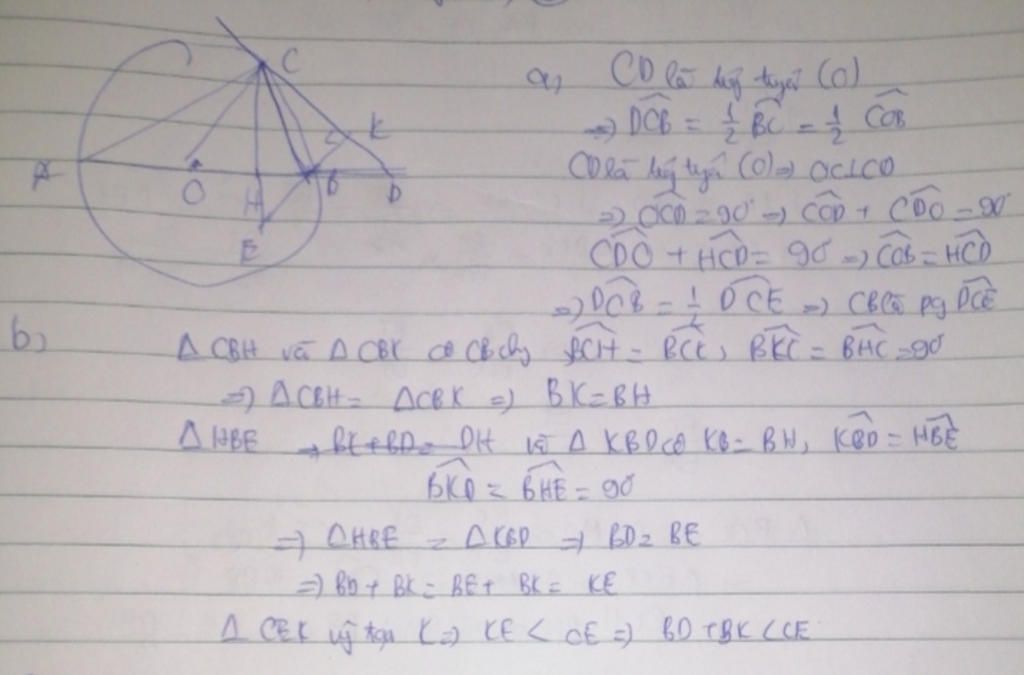 C
K
A
O
H
B
D
E
a, CD là tiếp tuyến (O)
=> \widehat{DCB} = \frac{1}{2} \widehat{BC} = \frac{1}{2} \widehat{COB}
CD là tiếp tuyến (O) => OC⊥CD
=> \widehat{OCD} = 90° => \widehat{COD} + \widehat{CDO} = 90°
\widehat{CDO} + \widehat{HCD} = 90° => \widehat{COB} = \widehat{HCD}
=> \widehat{DCB} = \frac{1}{2} \widehat{DCE} => CB là pg \widehat{DCE}
b, Δ CBH và Δ CBK có CB chung \widehat{BCH} = \widehat{BCK}, \widehat{BKC} = \widehat{BHC} = 90°
=> Δ CBH = Δ CBK => BK = BH
Δ HBE và Δ KBD có KB = BH, \widehat{KBD} = \widehat{HBE}
\widehat{BKD} = \widehat{BHE} = 90°
=> Δ HBE = Δ KBD => BD = BE
=> BD + BK = BE + BK = KE
Δ CEK vg tại K => KE < CE => BD + BK < CE